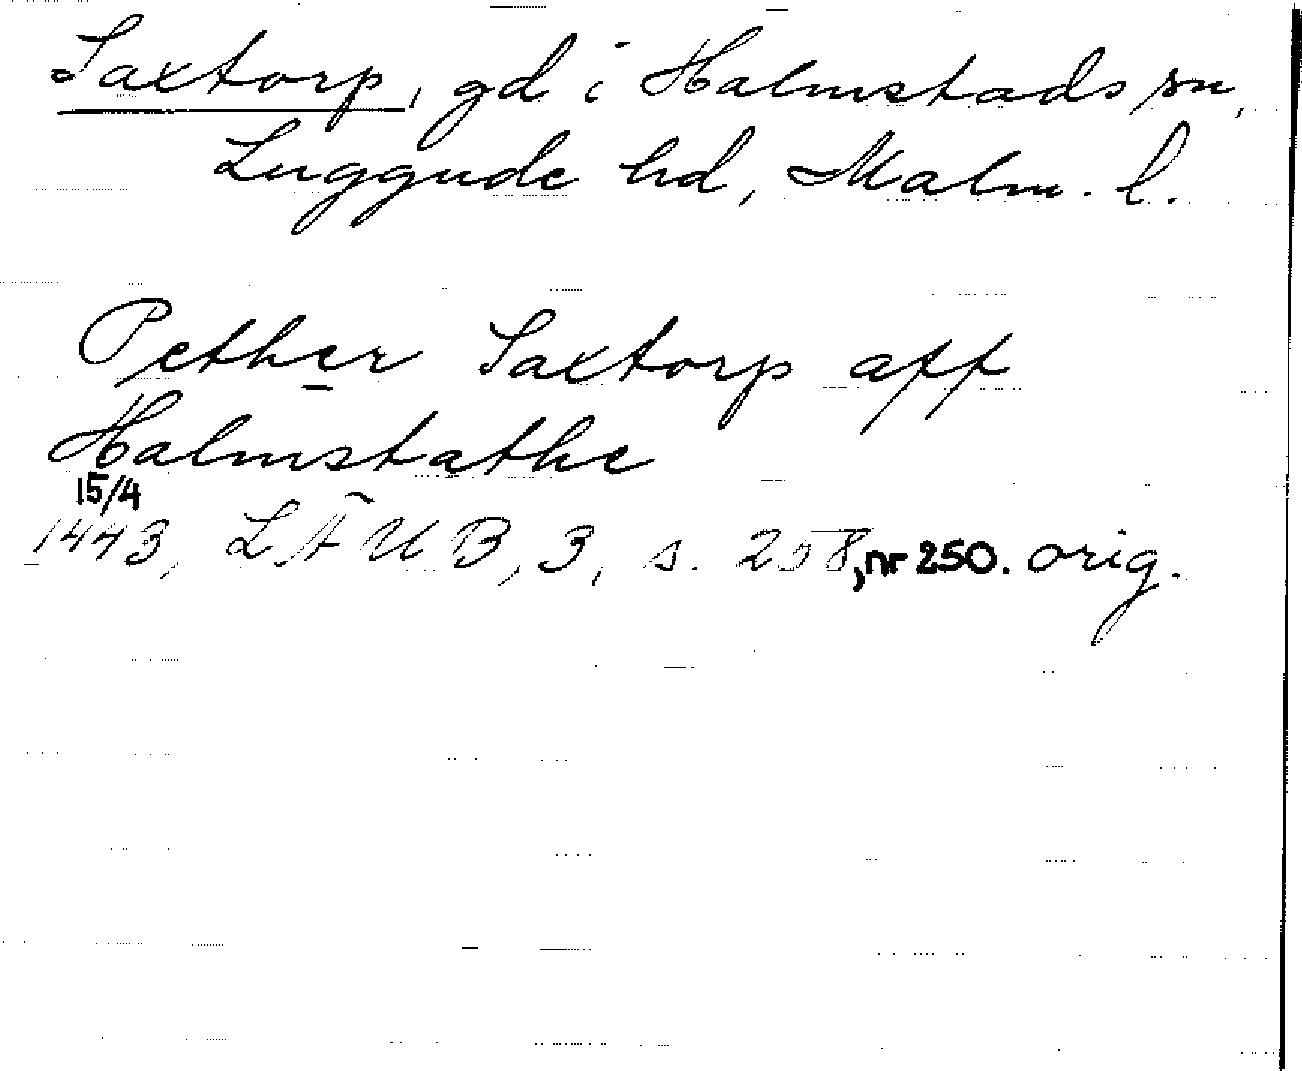 Saxtorp, gd i Halmstads sn,
Luggude hd, Malm. l.
Pether Saxtorp aff
Halmstathe
15/4
1443, LÄUB, 3, s. 258, nr 250. orig.